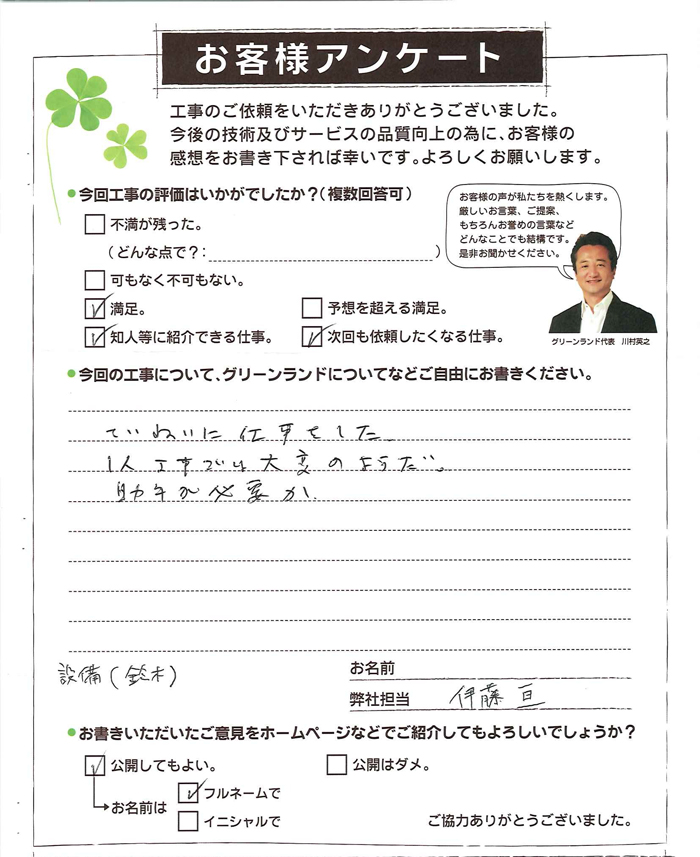 お客様アンケート
工事のご依頼をいただきありがとうございました。
今後の技術及びサービスの品質向上の為に、お客様の
感想をお書き下されば幸いです。よろしくお願いします。
今回工事の評価はいかがでしたか?(複数回答可)
不満が残った。
(どんな点で?: )
可もなく不可もない。
満足。
予想を超える満足。
知人等に紹介できる仕事。
次回も依頼したくなる仕事。
お客様の声が私たちを熱くします。
厳しいお言葉、ご提案、
もちろんお誉めの言葉など
どんなことでも結構です。
是非お聞かせください。
グリーンランド代表 川村英之
今回の工事について、グリーンランドについてなどご自由にお書きください。
ていねいに仕事をした
1人工事では大変のようだ。
助手が必要か
設備(鈴木)
お名前
弊社担当 伊藤 亘
お書きいただいたご意見をホームページなどでご紹介してもよろしいでしょうか?
公開してもよい。
公開はダメ。
お名前は
フルネームで
イニシャルで
ご協力ありがとうございました。